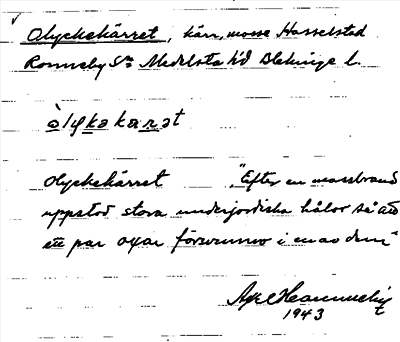 Olyckekärret, kärr, mosse Hasselstad
Ronneby Sn Medelsta hd Blekinge l.
òlykakarat
Olyckekärret "Efter en mossbrand
uppstod stora underjordiska hålor så att
ett par oxar försvunno i en av dem"
1943